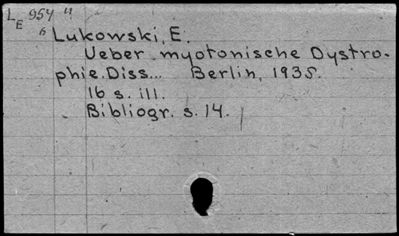 L 954 4
E 6
Lukowski, E.
Ueber myotonische Dystro-
phie. Diss... Berlin, 1935.
16 s. ill.
Bibliogr. s. 14.